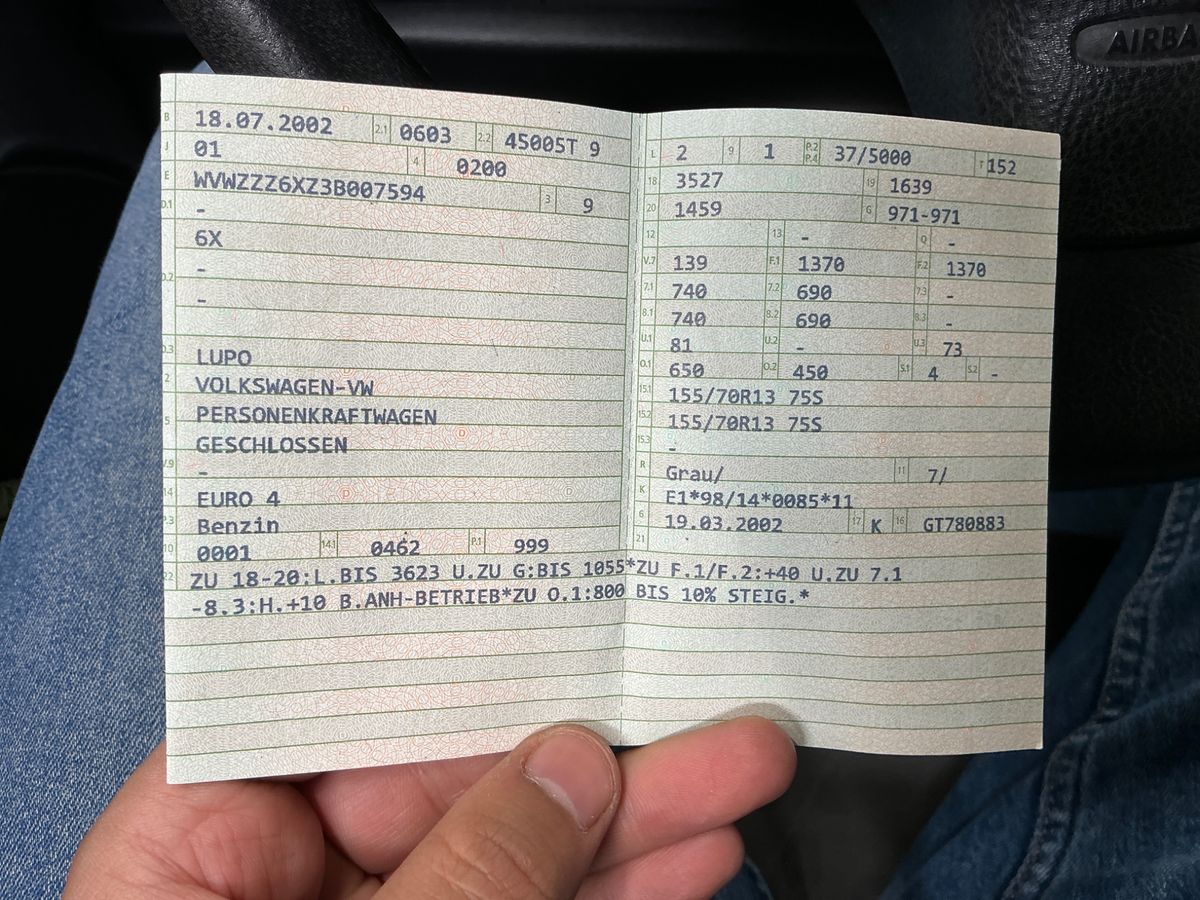 AIRBA
B 18.07.2002 2.1 0603 2.2 45005T 9
J 01 4 0200
E WVWZZZ6XZ3B007594 3 9
D.1 -
6X
D.2 -
-
D.3 LUPO
2 VOLKSWAGEN-VW
5 PERSONENKRAFTWAGEN
GESCHLOSSEN
V.9 -
14 EURO 4
P.3 Benzin
10 0001 14.1 0462 P.1 999
L 2 9 1 P.2 P.4 37/5000 T 152
18 3527 19 1639
20 1459 G 971-971
12 13 - Q -
V.7 139 F.1 1370 F.2 1370
7.1 740 7.2 690 7.3 -
8.1 740 8.2 690 8.3 -
U.1 81 U.2 - U.3 73
O.1 650 O.2 450 S.1 4 S.2 -
15.1 155/70R13 75S
15.2 155/70R13 75S
15.3 -
R Grau/ 11 7/
K E1*98/14*0085*11
6 19.03.2002 17 K 16 GT780883
21
22 ZU 18-20:L.BIS 3623 U.ZU G:BIS 1055*ZU F.1/F.2:+40 U.ZU 7.1
-8.3:H.+10 B.ANH-BETRIEB*ZU O.1:800 BIS 10% STEIG.*